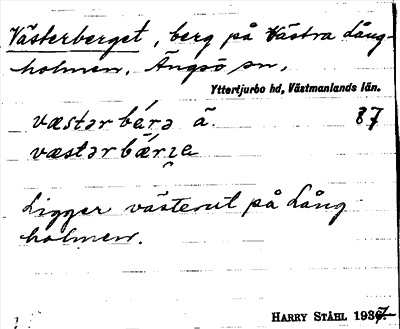 Västerberget, berg på Västra Lång-
holmen, Ängsö sn,
Yttertjurbo hd, Västmanlands län.
væstər bǽrə ä. 87
væstər bærɪe
Ligger västerut på Lång
holmen.
HARRY STÅHL 1937.